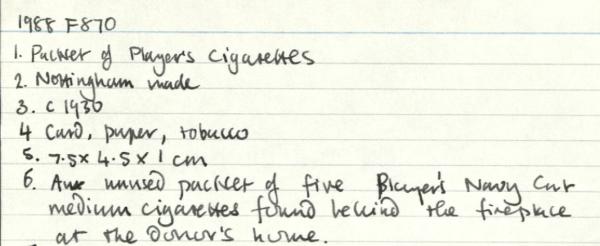 1988 F870
1. Packet of Player's Cigarettes
2. Nottingham made
3. C 1930
4 Card, paper, tobacco
5. 7.5 x 4.5 x 1 cm
6. An unused packet of five Player's Navy Cut
medium cigarettes found behind the fireplace
at the Donor's home.